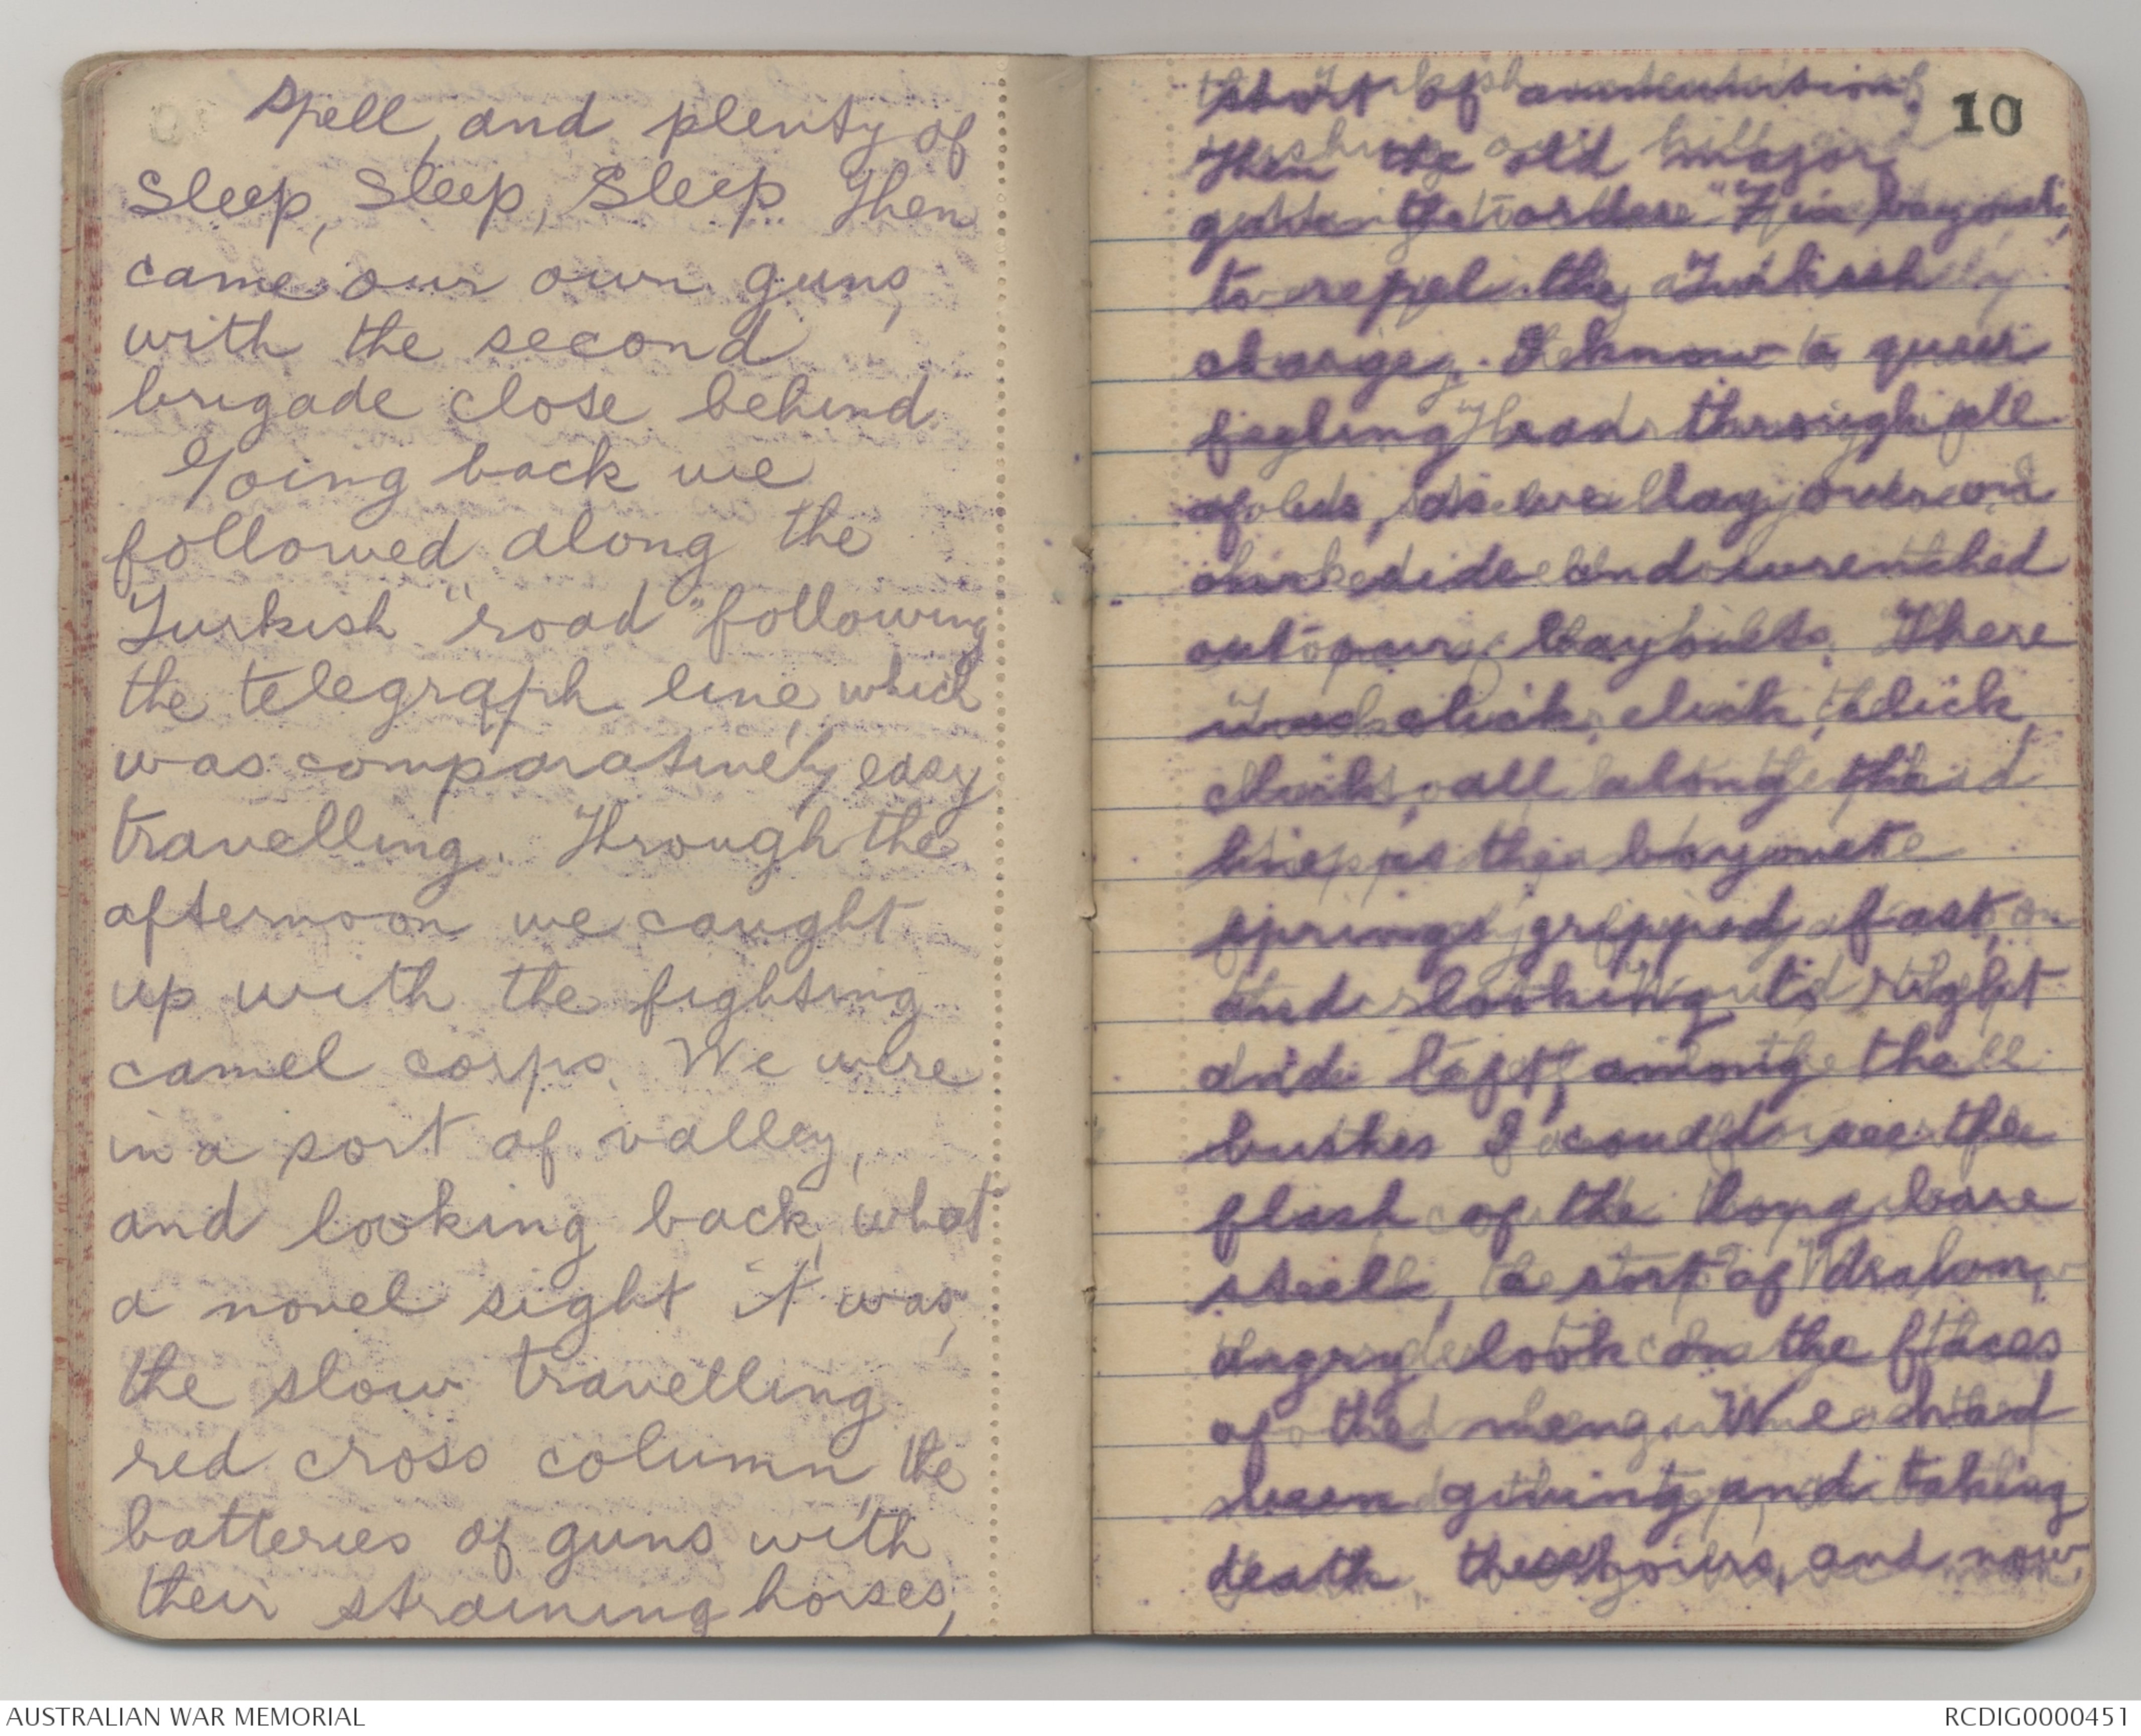 Spell, and plenty of
Sleep, Sleep, Sleep. Then
came our own guns,
with the second
brigade close behind.
Going back we
followed along the
Turkish "road" following
the telegraph line, which
was comparatively easy
travelling. Through the
afternoon we caught
up with the fighting
camel corps. We were
in a sort of valley,
and looking back, what
a novel sight it was,
the slow travelling
red cross column, the
batteries of guns with
their straining horses,
10
short of ammunition.
Then the old major
gave the order "Fix bayonets,
to repel the Turkish
charge. I know a queer
feeling ran through all
of us, as we lay over on
our side and wrenched
out our bayonets. There
was click, click, click,
click, all along the
line as the bayonet
springs gripped fast,
and looking to right
and left, among the
bushes I could see the
flash of the long bare
steel, a sort of drawn,
angry look on the faces
of the men. We had
been giving and taking
death, these hours, and now
AUSTRALIAN WAR MEMORIAL
RCDIG0000451